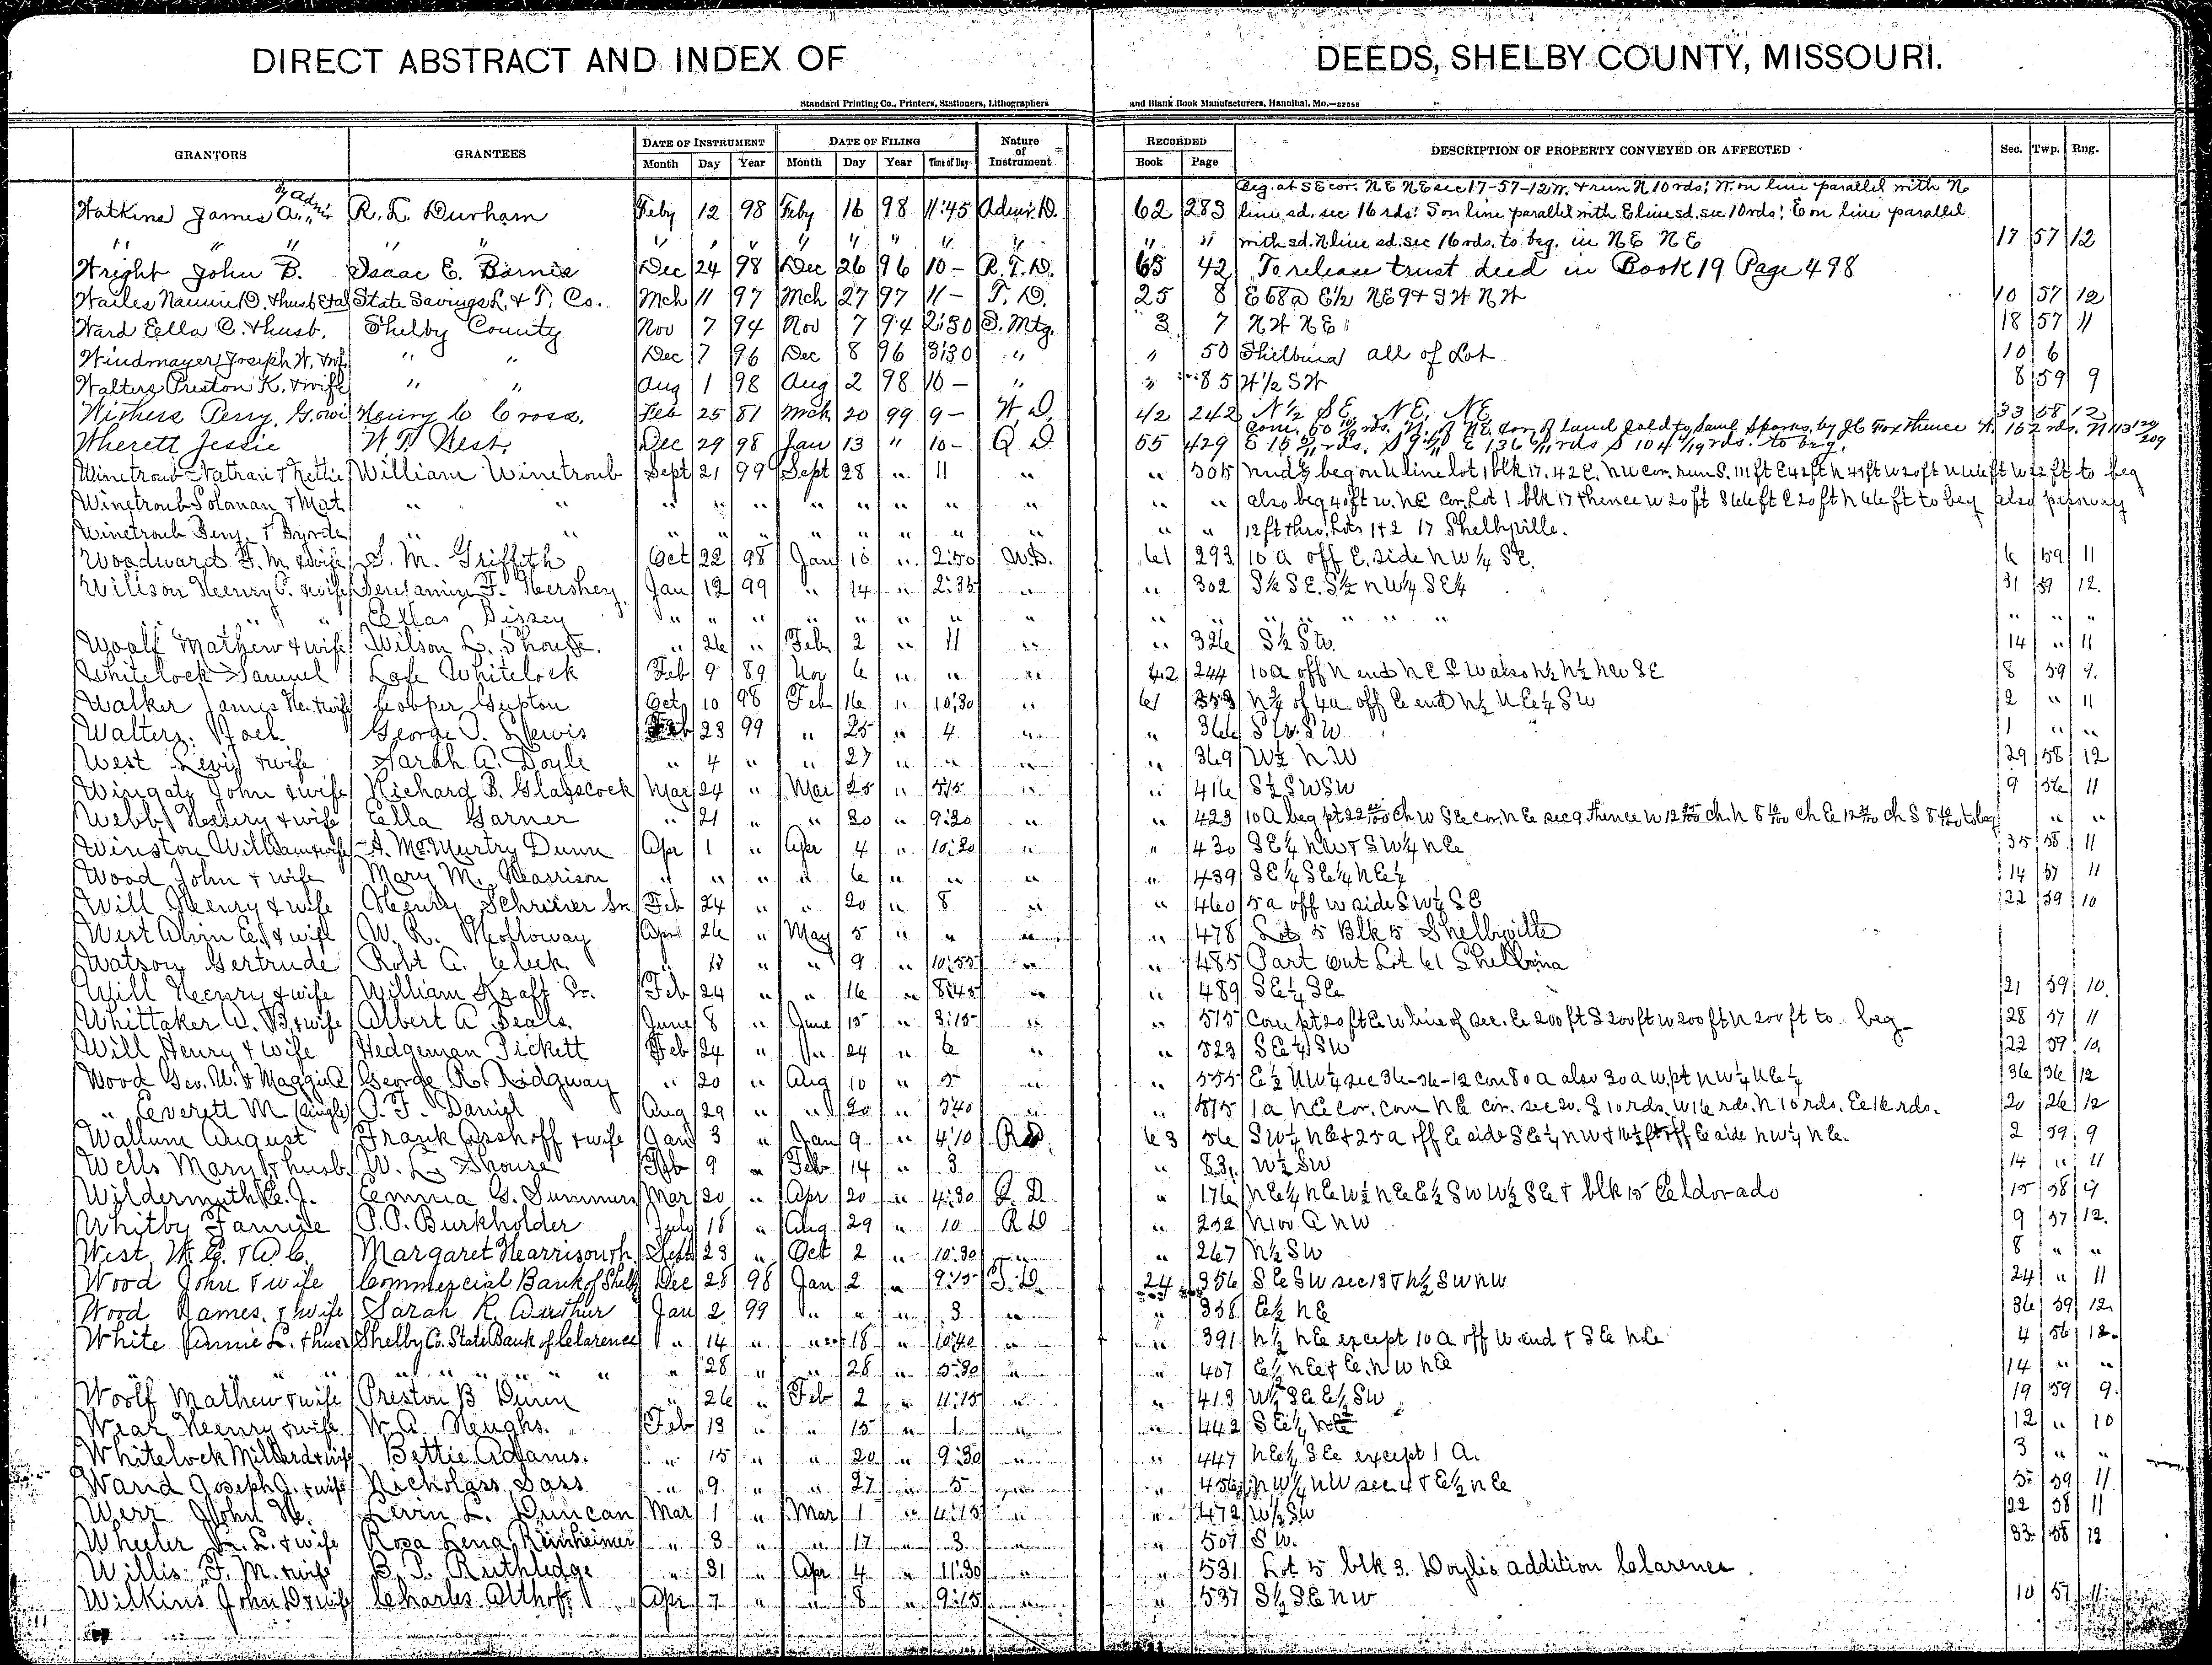 DIRECT ABSTRACT AND INDEX OF DEEDS, SHELBY COUNTY, MISSOURI.
Standard Printing Co., Printers, Stationers, Lithographers and Blank Book Manufacturers, Hannibal, Mo.
GRANTORS GRANTEES DATE OF INSTRUMENT DATE OF FILING Nature of Instrument RECORDED DESCRIPTION OF PROPERTY CONVEYED OR AFFECTED Sec. Twp. Rng.
Month Day Year Month Day Year Time of Day Book Page
by Admr Beg. at SE cor. NE NE sec 17-57-12 W. & run N 10 rds; W. on line parallel with N
Watkins James A. R. L. Durham Feby 12 98 Feby 16 98 11:45 Admr. D. 62 283 line sd. sec 16 rds; S on line parallel with E line sd. sec 10 rds; E on line parallel
" " " " " " " " " " " " " " " with sd. N line sd. sec 16 rds. to beg. in NE NE 17 57 12
Wright John B. Isaac E. Barnie Dec 24 98 Dec 26 96 10- R.T.D. 65 42 To release trust deed in Book 19 Page 498
Wailes Nannie D. & husb Etal State Savings L. & T. Co. Mch 11 97 Mch 27 97 11- T.D. 25 8 E 68a E½ NE 9 & SW NW 10 57 12
Ward Ella C. & husb. Shelby County Nov 7 94 Nov 7 94 2:30 S. Mtg. 3 7 NW NE 18 57 11
Windmayer Joseph W. & wf " " Dec 7 96 Dec 8 96 3:30 " " 50 Shelbina all of Lot 10 6
Walters Preston K. & wife " " Aug 1 98 Aug 2 98 10- " " 85 W½ SW 8 59 9
Withers Perry G. & wi Henry C Cross. Feb 25 81 Mch 20 99 9- W.D. 42 242 N½ SE. NE. NE 33 58 12
Wherett Jessie W. T. West. Dec 29 98 Jan 13 " 10- Q D 55 429
Winetroub Nathan & Nettie William Winetroub Sept 21 99 Sept 28 " 11 " " 305 und ⅔ beg on N line lot 1 blk 17. 42 E. NW cor. run S. 111 ft E 42 ft N 45 ft W 20 ft N 66 ft W 22 ft to beg
Winetroub Soloman & Mat " " " " " " " " " " " " " also beg 40 ft W. NE Cor. Lot 1 blk 17 thence W 20 ft S 66 ft E 20 ft N 66 ft to beg also
Winetroub Benj. & Byrde " " " " " " " " " " " " 12 ft thro. Lots 1 & 2 17 Shelbyville.
Woodward F. M. & wife S. M. Griffith Oct 22 98 Jan 10 " 2:50 W.D. 61 293 10 a off E. side NW ¼ SE. 6 59 11
Willson Henry C. & wife Benjamin F. Hershey Jan 12 99 " 14 " 2:35 " " 302 S½ SE. S½ NW¼ SE¼ 31 59 12.
" " " Ellas Dissey " " " " " " " " " " " " " " " " "
Woolf Mathew & wife Wilson L. Shouse. " 26 " Feb. 2 " 11 " " 326 S½ SW. 14 " 11
Whitelock Samuel Lafe Whitelock Feb 9 89 Nov 6 " " " 42 244 10 a off N end NE SW also N½ N½ NW SE 8 59 9.
Walker James H. & wife Cooper Gupton Oct 10 98 Feb 16 " 10:30 " 61 353 N¾ of 4a off E end N½ NE¼ SW 2 " 11
Walters. Joel George O. Lewis Feb 23 99 " 25 " 4 " " 366 SW. SW 1 " "
West Levi & wife Sarah A. Doyle " 4 " " 27 " " " " 369 W½ NW 29 58 12
Wingate John & wife Richard B. Glasscock Mar 24 " Mar 25 " 5:15 " " 416 S½ SW SW 9 56 11
Webb Hestery & wife Ella Garner " 21 " " 30 " 9:20 " " 423 10 A beg pt 22 ch W SE cor. NE sec 9 thence W 12 ch. N 8 ch E 12 ch S 8 to beg " "
Winston William & wife A. McMurtry Dunn Apr 1 " Apr 4 " 10:20 " " 430 SE¼ NW & SW¼ NE 35 58 11
Wood John & wife Mary M. Harrison " " " " 6 " " " " 439 SE¼ SE¼ NE¼ 14 57 11
Will Henry & wife Henry Schreier Sr. Feb 24 " " 20 " 8 " " 460 5 a off W side SW¼ SE 22 59 10
West Alvin E. & wife W. R. Holloway Apr 26 " May 5 " " " " 478 Lot 5 Blk 5 Shelbyville
Watson Gertrude Robt A. Cleek. " 13 " " 9 " 10:55 " " 485 Part Out Lot 61 Shelbina
Will Henry & wife William Kraft Sr. Feb 24 " " 16 " 8:45 " " 489 SE¼ SE 21 59 10.
Whittaker W. B. & wife Albert A Beals. June 8 " June 15 " 3:15 " " 515 Com pt 20 ft E W line of sec. E 200 ft S 200 ft W 200 ft N 200 ft to beg 28 57 11
Will Henry & wife Hedgeman Pickett Feb 24 " " 24 " 6 " " 523 SE¼ SW 22 59 10.
Wood Geo. W. & Maggie A George R. Ridgway " 20 " Aug 10 " 5 " 555 E½ NW¼ sec 36-56-12 con 80 a also 30 a W. pt NW¼ NE¼ 36 56 12
" Everett M (single) O. F. Daniel Aug 29 " " 30 " 5:40 " 575 1 a NE cor. com NE cor. sec 20. S 10 rds. W 16 rds. N 10 rds. E 16 rds. 20 56 12
Wallum August Frank Asshoff & wife Jan 3 " Jan 9 " 4:10 RD. 63 56 SW¼ NE & 25 a off E side SE¼ NW & 16½ ft off E side NW¼ NE. 2 59 9
Wells Mary & husb. W. L. Shouse Feb 9 " Feb 14 " 3 " 83. W½ SW 14 " 11
Wildermuth E. J. Emma G. Summers Mar 20 " Apr 20 " 4:30 Q. D. " 176 NE¼ NE W½ NE E½ SW W½ SE & blk 15 Eldorado 15 58 9
Whitby Fannie P. P. Burkholder July 18 " Aug. 29 " 10 RD " 232 N 100 A NW 9 57 12.
West, W. G. & A. C. Margaret Harrison Sept 23 " Oct 2 " 10:30 " " 267 N½ SW 8 " "
Wood John & wife Commercial Bank of Shelb Dec 28 98 Jan 2 " 9:15 T.D. 24 356 SE SW sec 13 & N½ SW NW 24 " 11
Wood James. & wife Sarah R. Arthur Jan 2 99 " " " 3 " " 358 E½ NE 36 59 12.
White Annie L. & hus Shelby Co. State Bank of Clarence " 14 " " 18 " 10:40 " " 391 N½ NE except 10 a off W end & SE NE 4 56 12.
" " " " " " 28 " " 28 " 5:30 " " 407 E½ NE & E. NW NE 14 " "
Woolf Mathew & wife Preston B Dunn " 26 " Feb 2 " 11:15 " " 413 W½ SE E½ SW 19 59 9.
Wear Henry & wife W. A. Hughs. Feb 13 " " 15 " 1 " " 442 SE¼ 12 " 10
Whitelock Millard & wife Bettie Adams. " 15 " " 20 " 9:30 " " 447 NE¼ SE except 1 A. 3 " "
Ward Joseph J. & wife Nicholass Sass " 9 " " 27 " 5 " " 456 NW¼ NW sec 4 & E½ NE 5 59 11
Werz John H. Levin L. Duncan Mar 1 " Mar 1 " 4:15 " " 472 W½ SW 22 58 11
Wheeler & wife Rosa Lena " 3 " " 17 " 3 " " 507 SW. 33 58 12
Willis F. M. & wife B. P. Ruthledge " 31 " Apr 4 " 11:30 " " 531 Lot 5 blk 3. Doyles addition Clarence.
Wilkins John D & wife Charles Althoff Apr 7 " " 8 " 9:15 " " 537 S½ SE NW 10 57 11